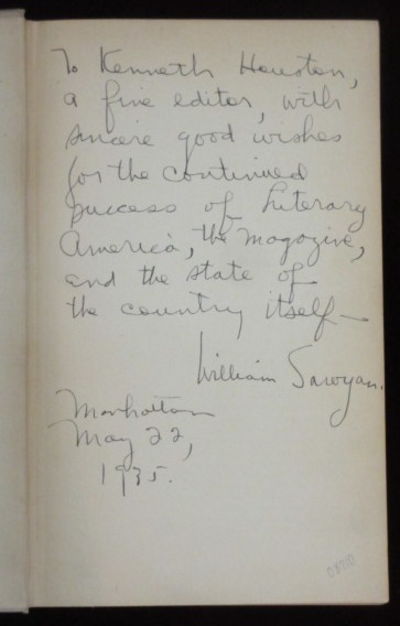 To Kenneth Houston,
a fine editor, with
sincere good wishes
for the continued
success of Literary
America, the magazine,
and the state of
the country itself—
William Saroyan.
Manhattan
May 22,
1935.